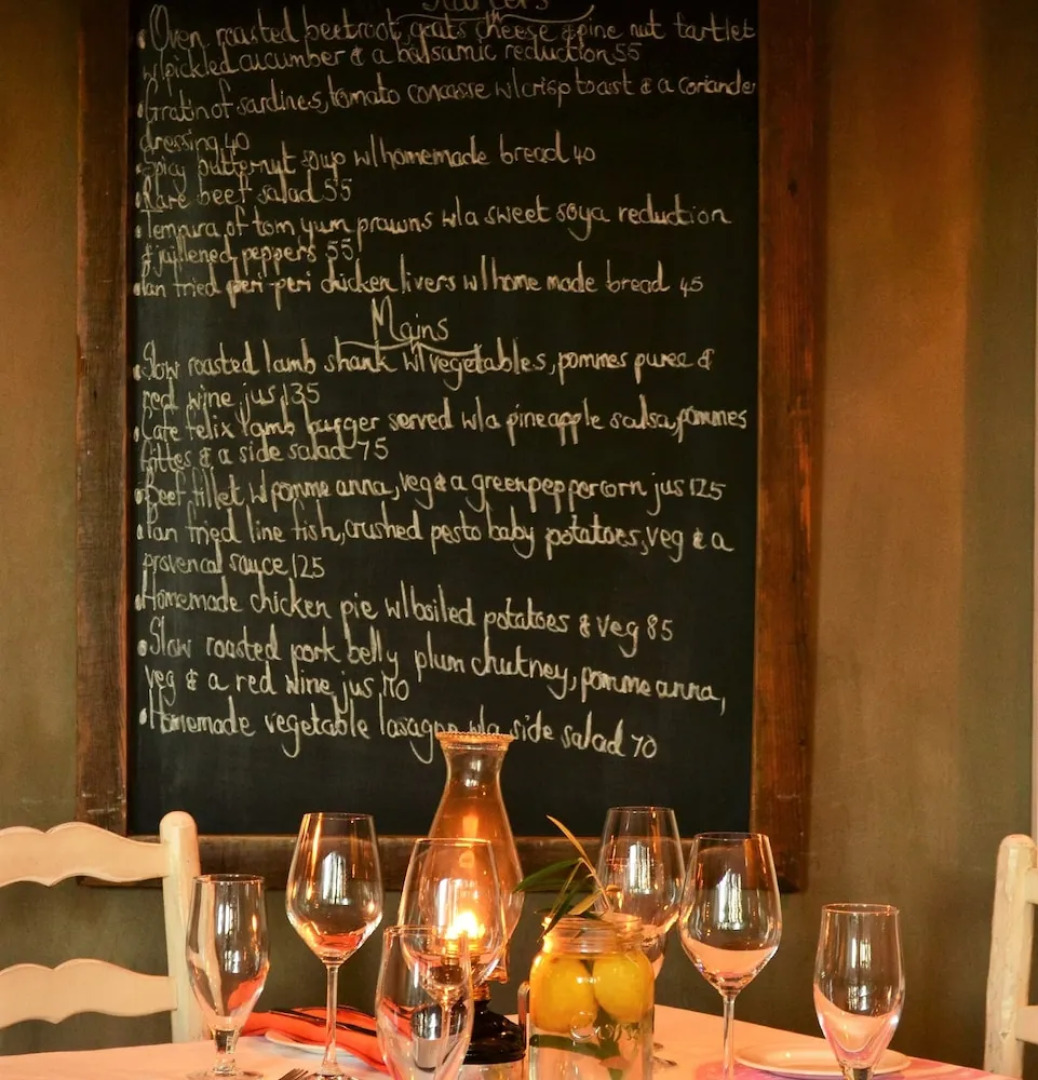 Starters
• Oven roasted beetroot, goats cheese & pine nut tartlet
w/pickled cucumber & a balsamic reduction 55
• Gratin of sardines, tomato concasse w/crisp toast & a coriander
dressing 40
• Spicy butternut soup w/homemade bread 40
• Rare beef salad 55
• Tempura of tom yum prawns w/a sweet soya reduction
& jullened peppers 55
• Pan fried peri-peri chicken livers w/home made bread 45
Mains
• Slow roasted lamb shank w/vegetables, pommes puree &
red wine jus 135
• Cafe felix lamb burger served w/a pineapple salsa, pommes
frittes & a side salad 75
• Beef fillet w/pomme anna, veg & a greenpeppercorn jus 125
• Pan fried line fish, crushed pesto baby potatoes, veg & a
provencal sauce 125
• Homemade chicken pie w/boiled potatoes & veg 85
• Slow roasted pork belly, plum chutney, pomme anna,
veg & a red wine jus 110
• Homemade vegetable lasagne w/a side salad 70